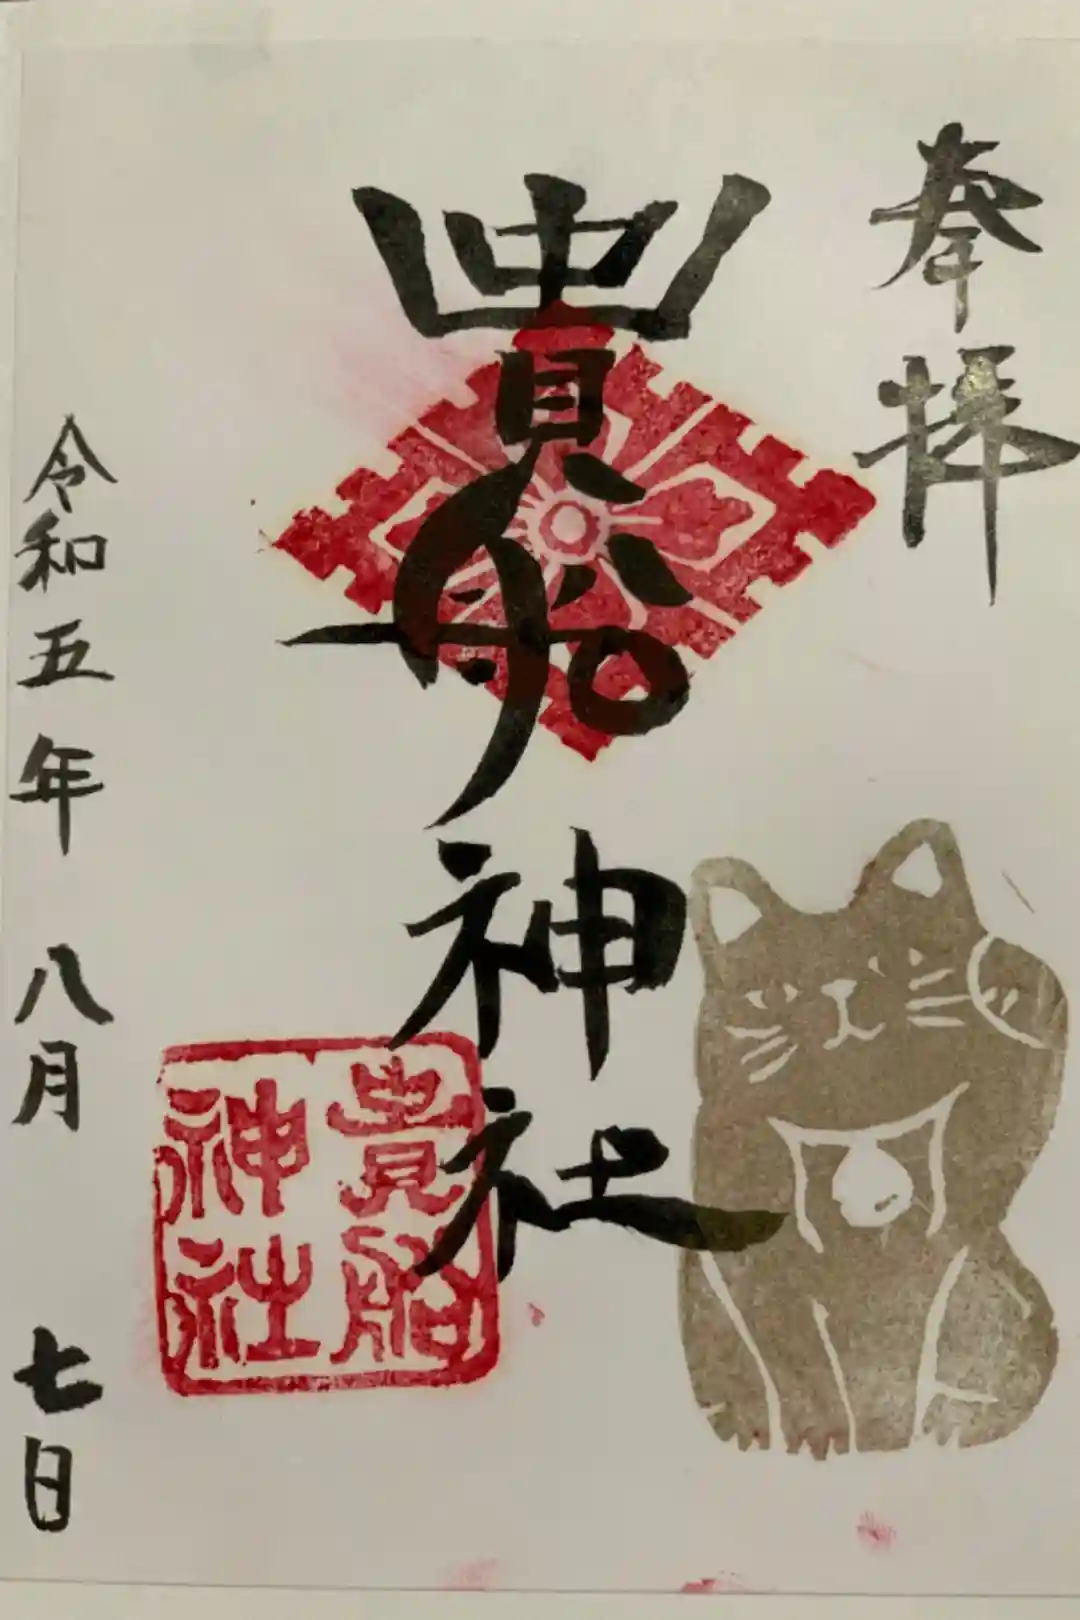 奉拝
貴船神社
貴船
神社
令和五年八月七日